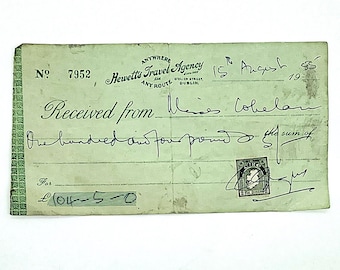 ANYWHERE
Nº 7952 Hewett's Travel Agency
ANY ROUTE
DUBLIN.
15th August 19
Received from Miss
One hundred and four pounds
the sum of
For
£ 104-5-0